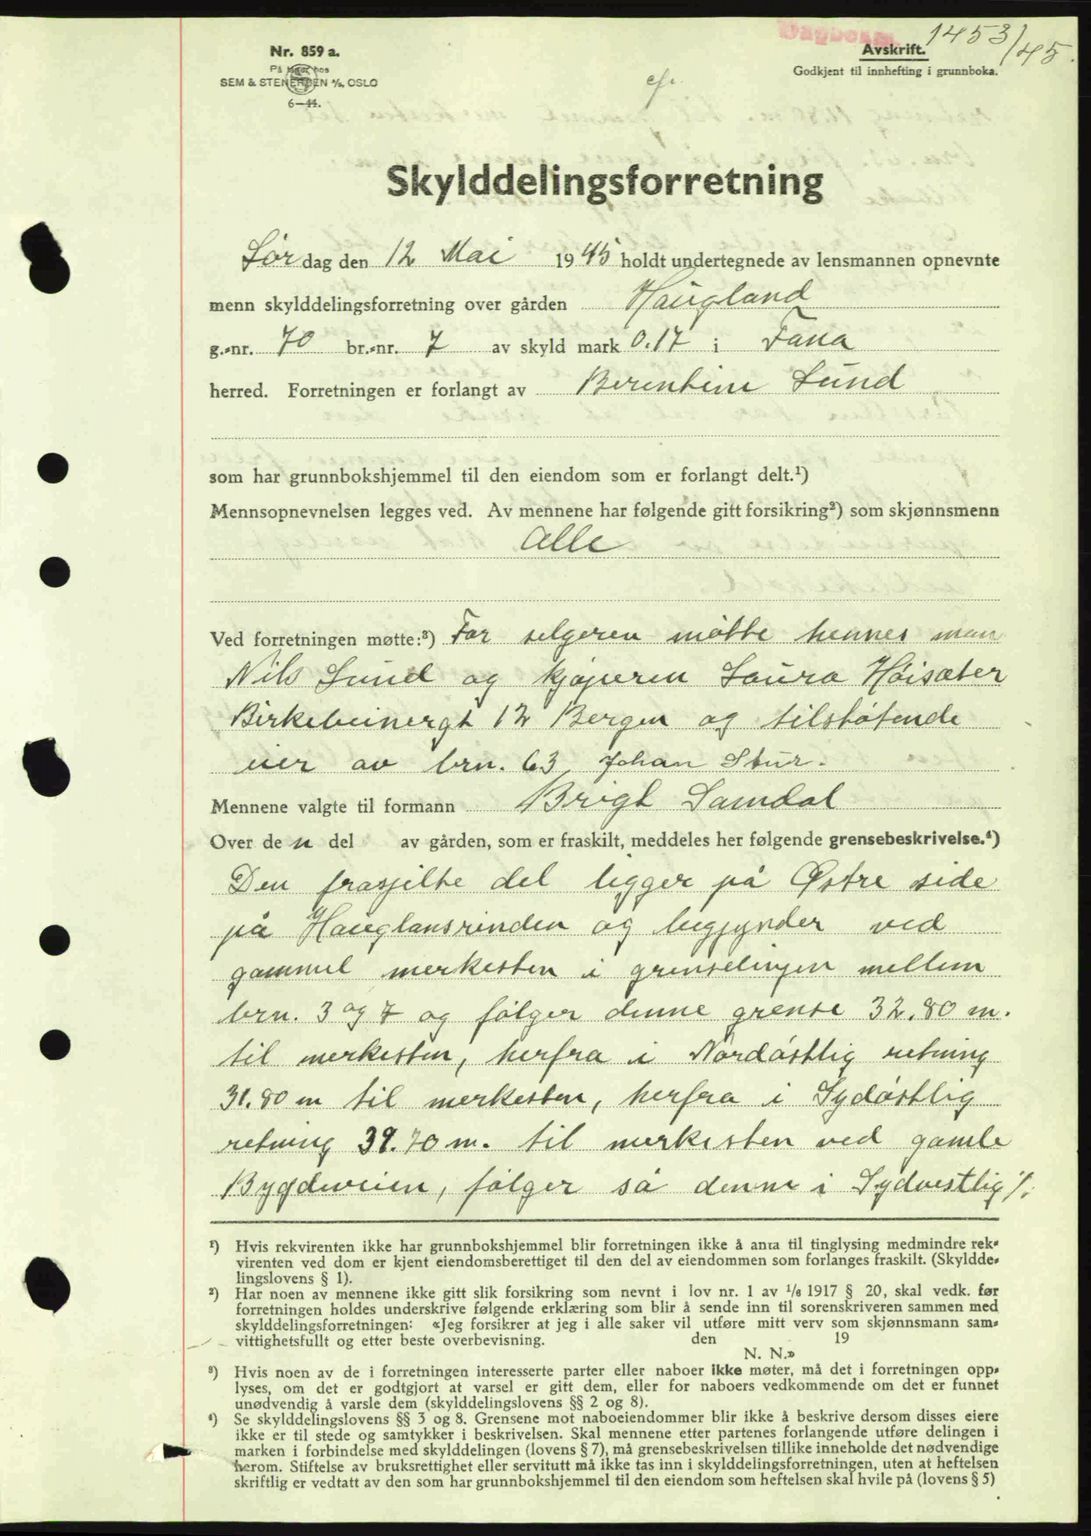 Dagbok nr. 1453/45.
Nr. 859 a.
På lager hos
SEM & STENERSEN A/S, OSLO
6—44.
Avskrift.
Godkjent til innhefting i grunnboka.
Skylddelingsforretning
Lør dag den 12 Mai 1945 holdt undertegnede av lensmannen opnevnte
menn skylddelingsforretning over gården Haugland
g.-nr. 70 br.-nr. 7 av skyld mark 0.17 i Fana
herred. Forretningen er forlangt av Berentine Lund
som har grunnbokshjemmel til den eiendom som er forlangt delt.¹)
Mennsopnevnelsen legges ved. Av mennene har følgende gitt forsikring²) som skjønnsmenn
Alle
Ved forretningen møtte:³) For selgeren møtte hennes man
Nils Lund og kjøperen Laura Høisæter
Birkebeinergt 12 Bergen og tilstøtende
eier av brn. 63 Johan Stur.
Mennene valgte til formann Brigt Samdal
Over de n del av gården, som er fraskilt, meddeles her følgende grensebeskrivelse.⁴)
Den frasjelte del ligger på Østre side
på Hauglansrinden og begjynder ved
gammel merkesten i grenselinjen mellem
brn. 3 og 7 og følger denne grense 32.80 m.
til merkesten, herfra i Nordøstlig retning
31.80 m til merkesten, herfra i Sydøstlig
retning 39.70 m. til merkesten ved gamle
Bygdeveien, følger så denne i Sydvestlig ./.
¹) Hvis rekvirenten ikke har grunnbokshjemmel blir forretningen ikke å anta til tinglysing medmindre rek-
virenten ved dom er kjent eiendomsberettiget til den del av eiendommen som forlanges fraskilt. (Skyldde-
lingslovens § 1).
²) Har noen av mennene ikke gitt slik forsikring som nevnt i lov nr. 1 av 1/6 1917 § 20, skal vedk. før
forretningen holdes underskrive følgende erklæring som blir å sende inn til sorenskriveren sammen med
skylddelingsforretningen: «Jeg forsikrer at jeg i alle saker vil utføre mitt verv som skjønnsmann sam-
vittighetsfullt og etter beste overbevisning. den 19
N. N.»
³) Hvis noen av de i forretningen interesserte parter eller naboer ikke møter, må det i forretningen opp-
lyses, om det er godtgjort at varsel er gitt dem, eller for naboers vedkommende om det er funnet
unødvendig å varsle dem (skylddelingslovens §§ 2 og 8).
⁴) Se skylddelingslovens §§ 3 og 8. Grensene mot naboeiendommer blir ikke å beskrive dersom disses eiere
ikke er til stede og samtykker i beskrivelsen. Skal mennene etter partenes forlangende utføre delingen i
marken i forbindelse med skylddelingen (lovens § 7), må grensebeskrivelsen tillike inneholde det nødvendige
herom. Stiftelse av bruksrettighet eller servitutt må ikke tas inn i skylddelingsforretningen, uten at heftelsen
skriftlig er vedtatt av den som har grunnbokshjemmel til den eiendom som heftelsen skal hvile på (lovens § 5)